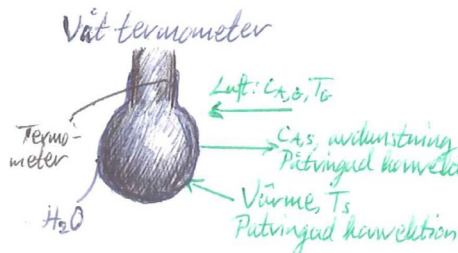 Våt termometer
Luft: CA,G, TG
Termo-
meter
CA,S, avdunstning
Påtvingad konvek
Värme, TS
Påtvingad konvektion
H2O